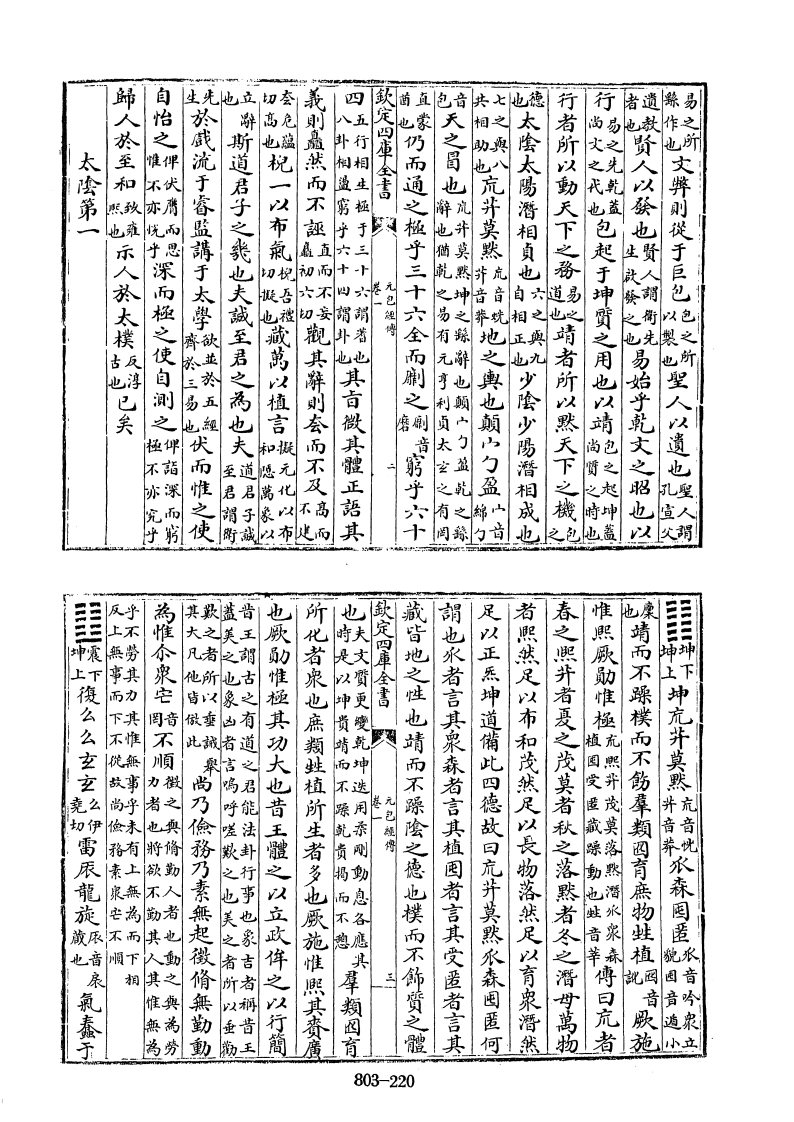 易之所繇作也文弊則從于巨包包之所以製也聖人以遺也聖人謂孔宣父
遺教者也賢人以發也賢人謂衛先生啟發之也易始乎乾文之昭也以
行易之先乾蓋尚文之代也包起于坤質之用也以靖包之起坤蓋尚質之時也
行者所以動天下之務易之道也靖者所以默天下之機包之
德也太陰太陽潛相貞也六之與九自相正也少陰少陽潛相成也
七之與八共相助也巟茻莫默巟音怳茻音莽地之輿也顛宀勹盈宀音綿勹
音包天之冒也巟茻莫默坤之繇辭也顛宀勹盈乾之繇辭也猶乾之易有元亨利貞太玄之有罔
直蒙酋也仍而通之極乎三十六全而劘之劘音磨窮乎六十
欽定四庫全書 元包經傳 卷一 二
四五行相生極于三十六謂蓍也八卦相盪窮乎六十四謂卦也其言微其體正語其
義則矗然而不誣直而不妄矗初六切觀其辭則奆而不及高而不建
奆危蘊切高也棿一以布氣棿吾禮切擬也藏萬以植言擬元化以布和隱萬象以
立辭也斯道君子之幾也夫誠至君之為也夫道君子誠至君謂衛
先生於戲流于睿監講于太學欲並於五經齊於三易也伏而惟之使
自怡之俾伏膺而思惟不亦恱乎深而極之使自測之俾詣深而窮極不亦究乎
歸人於至和致雍熙也示人於太樸反淳古也已矣
太陰第一
䷁坤下坤上坤巟茻莫默巟音怳茻音莽㐺森囷匿㐺音吟衆立貌囷音遁小
廩也靖而不躁樸而不飭羣類囮育庶物甡植囮音訛厥施
惟熙厥勛惟極巟熙茻茂莫落默潛㐺衆森植囷受匿藏躁動也甡音莘傳曰巟者
春之熙茻者夏之茂莫者秋之落默者冬之潛母萬物
者熙然足以布和茂然足以長物落然足以育衆潛然
足以正炁坤道備此四德故曰巟茻莫默㐺森囷匿何
謂也㐺者言其衆森者言其植囷者言其受匿者言其
藏皆地之性也靖而不躁陰之德也樸而不飾質之體
欽定四庫全書 元包經傳 卷一 三
也夫文質更變乾坤迭用柔剛動息各應其時是以坤貴靖而不躁乾貴揭而不憩羣類囮育
所化者衆也庶類甡植所生者多也厥施惟熙其賚廣
也厥勛惟極其功大也昔王體之以立政侔之以行簡
昔王謂古之有道之君能法卦行事也象吉者稱昔王蓋美之也象凶者言嗚呼嗟歎之也美之者所以垂勸
歎之者所以垂誡舉其大凡他皆倣此尚乃儉務乃素無起徵脩無勤動
為惟尒衆宅音罔不順徵之與脩勤人者也動之與為勞力者也將欲不勤其人其惟無為
乎不勞其力其惟無事乎未有上無為而下不相反上無事而下不從故尚儉務素衆宅不順
䷗震下坤上復幺幺玄玄幺伊堯切雷㕓龍旋㕓音㕓藏也氣蠢于
803-220